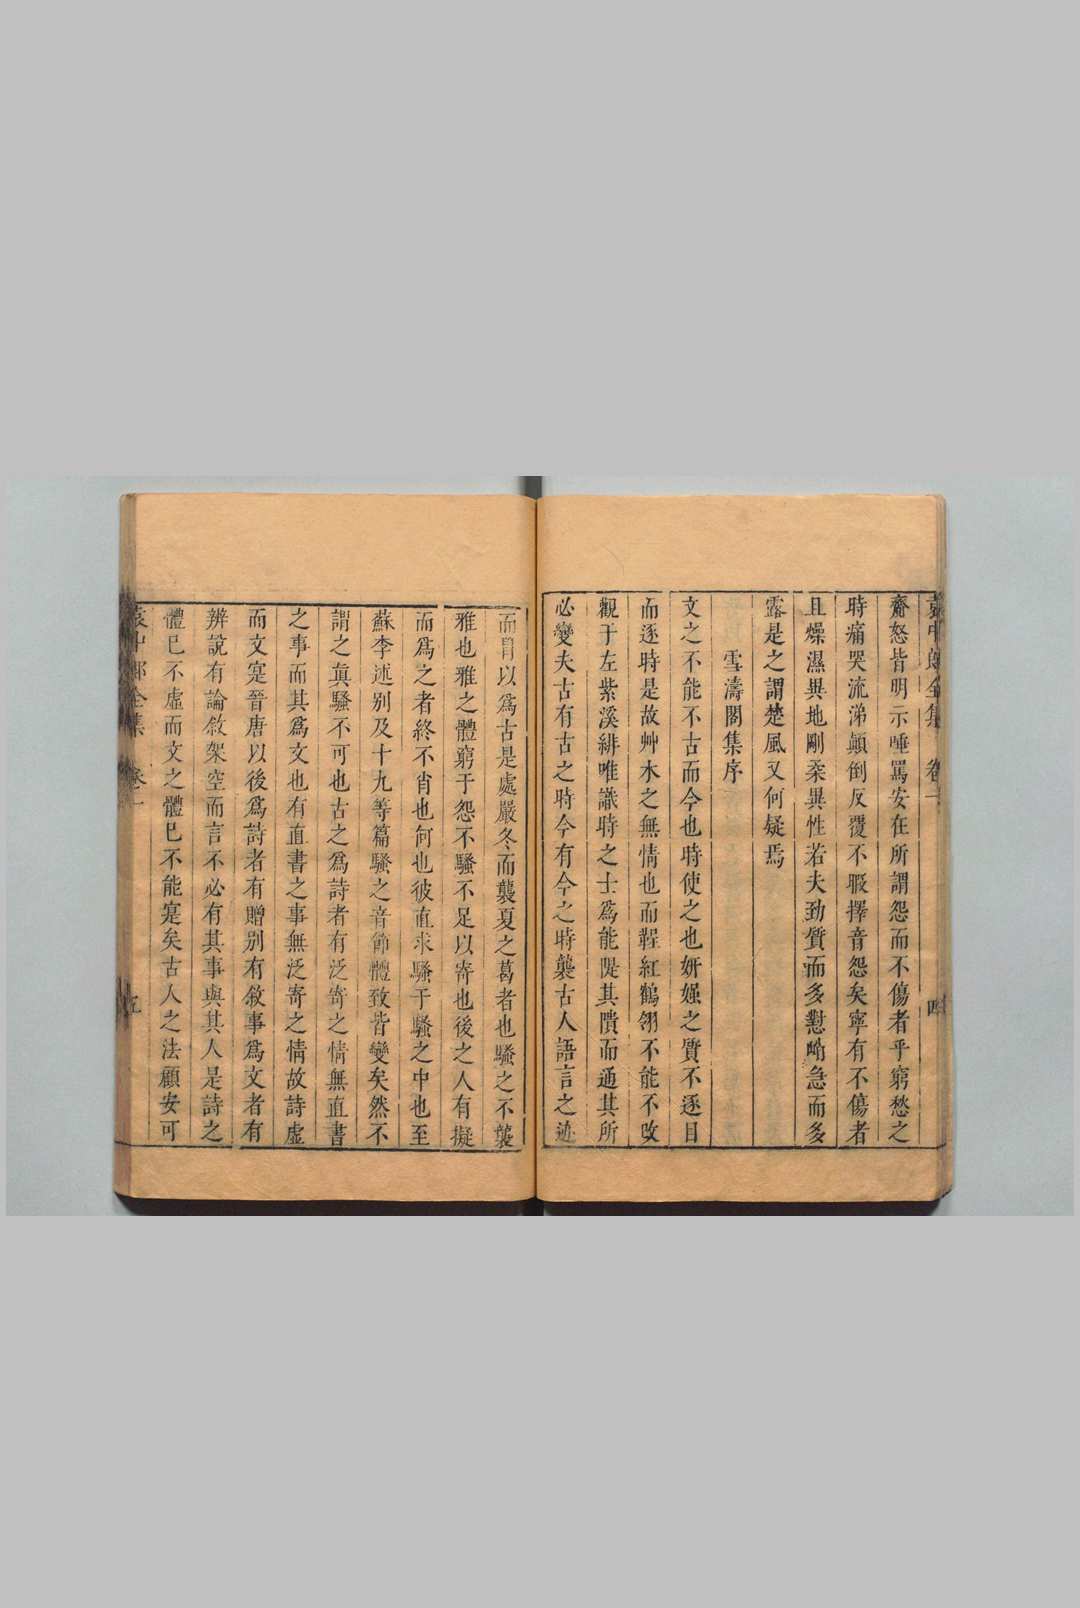 袁中郎全集 卷一 四
齋怒皆明示唾罵安在所謂怨而不傷者乎窮愁之
時痛哭流涕顛倒反覆不暇擇音怨矣寧有不傷者
且燥濕異地剛柔異性若夫勁質而多懟峭急而多
露是之謂楚風又何疑焉
雪濤閣集序
文之不能不古而今也時使之也妍媸之質不逐目
而逐時是故艸木之無情也而鞓紅鶴翎不能不改
觀于左紫溪緋唯識時之士爲能隄其隤而通其所
必變夫古有古之時今有今之時襲古人語言之迹
而冐以爲古是處嚴冬而襲夏之葛者也騷之不襲
雅也雅之體窮于怨不騷不足以寄也後之人有擬
而爲之者終不肖也何也彼直求騷于騷之中也至
蘇李述別及十九等篇騷之音節體致皆變矣然不
謂之眞騷不可也古之爲詩者有泛寄之情無直書
之事而其爲文也有直書之事無泛寄之情故詩虛
而文寔晉唐以後爲詩者有贈別有敘事爲文者有
辨說有論敘架空而言不必有其事與其人是詩之
體已不虛而文之體已不能寔矣古人之法顧安可
袁中郎全集 卷一 五